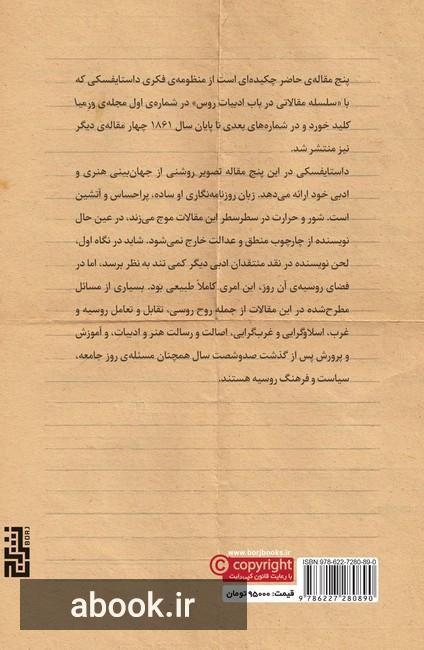 پنج مقاله‌ی حاضر چکیده‌ای است از منظومه‌ی فکری داستایفسکی که
با «سلسله مقالاتی در باب ادبیات روس» در شماره‌ی اول مجله‌ی ورمیا
کلید خورد و در شماره‌های بعدی تا پایان سال ۱۸۶۱ چهار مقاله‌ی دیگر
نیز منتشر شد.
داستایفسکی در این پنج مقاله تصویر روشنی از جهان‌بینی هنری و
ادبی خود ارائه می‌دهد. زبان روزنامه‌نگاری او ساده، پراحساس و آتشین
است. شور و حرارت در سطرسطر این مقالات موج می‌زند، در عین حال
نویسنده از چارچوب منطق و عدالت خارج نمی‌شود. شاید در نگاه اول،
لحن نویسنده در نقد منتقدان ادبی دیگر کمی تند به نظر برسد، اما در
فضای روسیه‌ی آن روز، این امری کاملاً طبیعی بود. بسیاری از مسائل
مطرح‌شده در این مقالات از جمله روح روسی، تقابل و تعامل روسیه و
غرب، اسلاوگرایی و غرب‌گرایی، اصالت و رسالت هنر و ادبیات، و آموزش
و پرورش پس از گذشت صدوشصت سال همچنان مسئله‌ی روز جامعه،
سیاست و فرهنگ روسیه هستند.
BORJ
www.borjbooks.ir
© copyright
با رعایت قانون کپی‌رایت
قیمت: ۹۵۰۰۰ تومان
ISBN: 978-622-7280-89-0
9 786227 280890
abook.ir